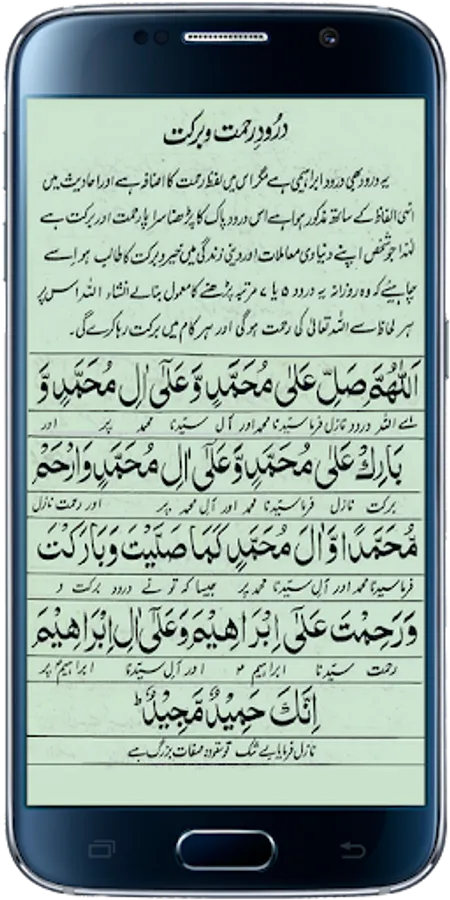 درُودِ رحمت و برکت
یہ درود بھی درودِ ابراہیمی ہے مگر اس میں لفظ رحمت کا اضافہ ہے اور احادیث میں
انہی الفاظ کے ساتھ مذکور ہوا ہے اس درود پاک کا پڑھنا سراپا رحمت اور برکت ہے
لہٰذا جو شخص اپنے دنیاوی معاملات اور دینی زندگی میں خیر و برکت کا طالب ہو اسے
چاہیئے کہ وہ روزانہ یہ درود ۵ یا ۷ مرتبہ پڑھنے کا معمول بنالے انشاء اللہ اس پر
ہر لحاظ سے اللہ تعالیٰ کی رحمت ہوگی اور ہر کام میں برکت رہا کرے گی۔
اَللّٰهُمَّ صَلِّ عَلٰى مُحَمَّدٍ وَّ عَلٰٓى اٰلِ مُحَمَّدٍ وَّ
اے اللہ درود نازل فرما سیّدنا محمد اور آل سیّدنا محمد پر اور
بَارِكْ عَلٰى مُحَمَّدٍ وَّعَلٰٓى اٰلِ مُحَمَّدٍ وَّارْحَمْ
برکت نازل فرما سیّدنا محمد اور آلِ محمد پر اور رحمت نازل
مُحَمَّدًا وَّاٰلَ مُحَمَّدٍ كَمَا صَلَّيْتَ وَبَارَكْتَ
فرما سیدنا محمد اور آلِ سیّدنا محمد پر جیسا کہ تو نے درود برکت و
وَرَحِمْتَ عَلٰٓى اِبْرَاهِيْمَ وَعَلٰٓى اٰلِ اِبْرَاهِيْمَ
رحمت سیّدنا ابراہیم ؑ اور آلِ سیّدنا ابراہیمؑ پر
اِنَّكَ حَمِيْدٌ مَّجِيْدٌ ؕ
نازل فرمایا بے شک تو ستودہ صفات بزرگ ہے